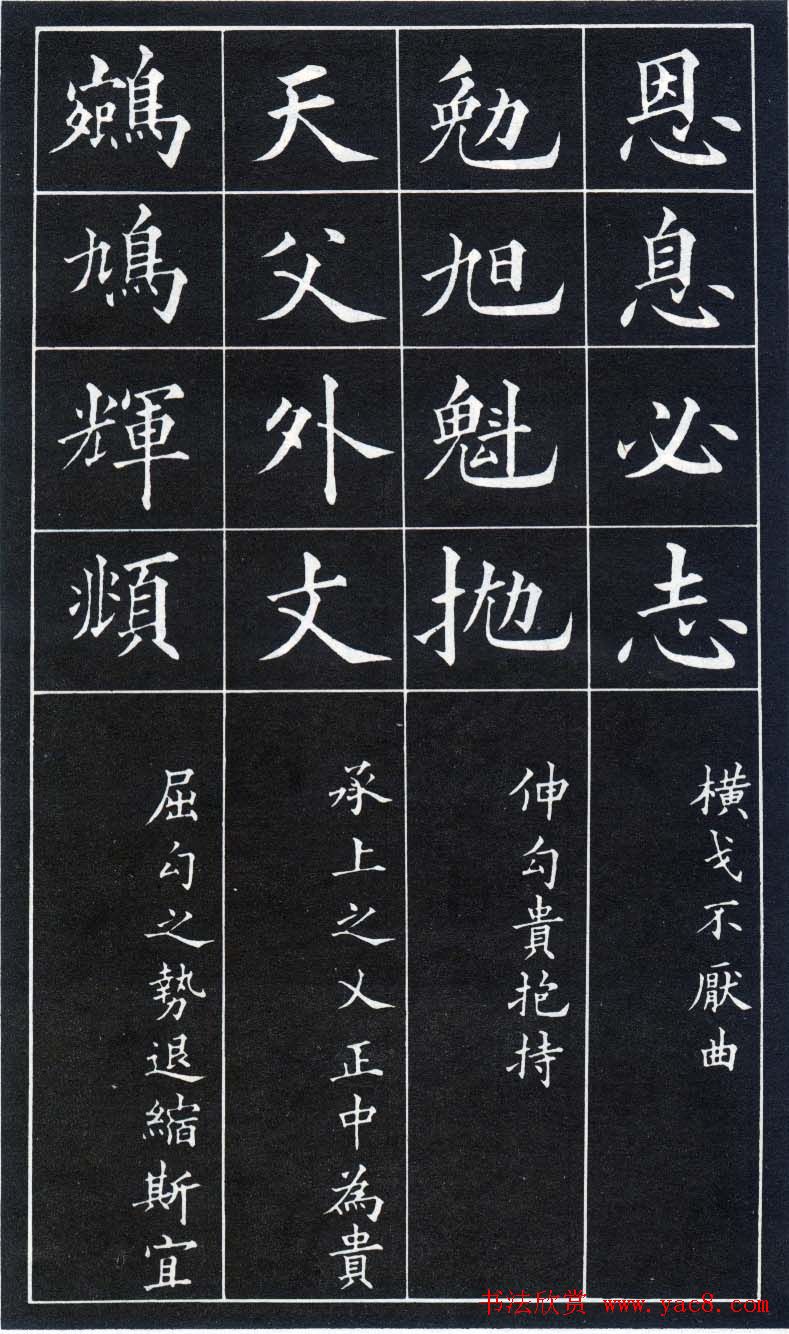 恩息必志
橫戈不厭曲
勉旭魁抛
伸勾貴抱持
天父外文
承上之乂正中為貴
鳩輝頫
屈勾之勢退縮斯宜
书法欣赏 www.yac8.com